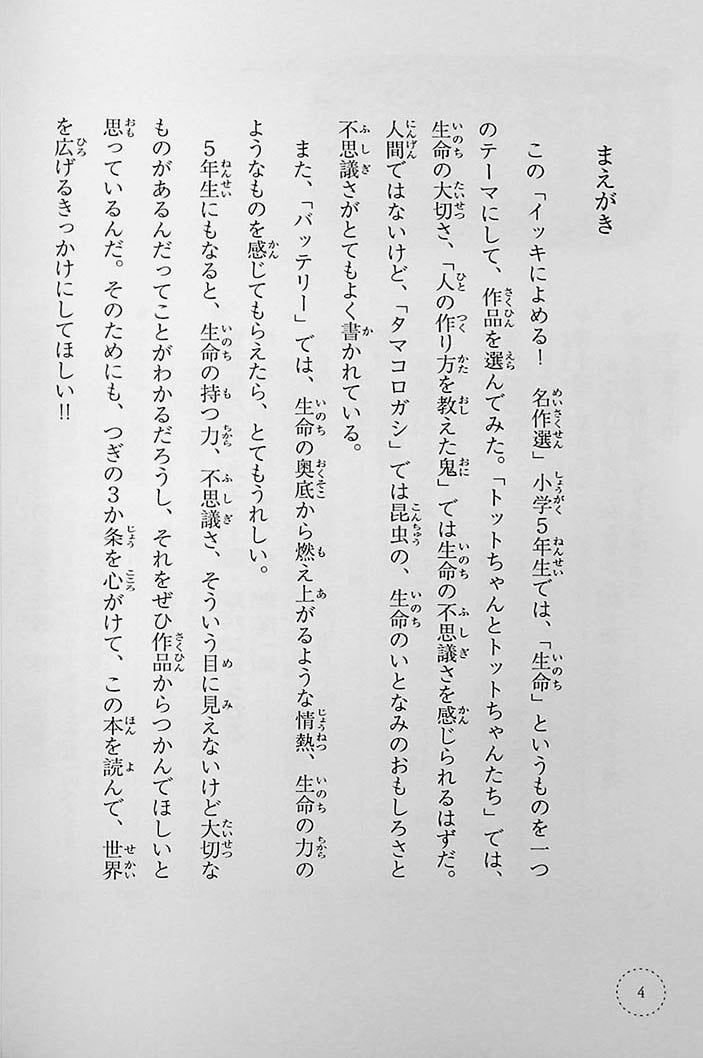 まえがき
この「イッキによめる！　名作選」小学5年生では、「生命」というものを一つ
のテーマにして、作品を選んでみた。「トットちゃんとトットちゃんたち」では、
生命の大切さ、「人の作り方を教えた鬼」では生命の不思議さを感じられるはずだ。
人間ではないけど、「タマコロガシ」では昆虫の、生命のいとなみのおもしろさと
不思議さがとてもよく書かれている。
また、「バッテリー」では、生命の奥底から燃え上がるような情熱、生命の力の
ようなものを感じてもらえたら、とてもうれしい。
5年生にもなると、生命の持つ力、不思議さ、そういう目に見えないけど大切な
ものがあるんだってことがわかるだろうし、それをぜひ作品からつかんでほしいと
思っているんだ。そのためにも、つぎの3か条を心がけて、この本を読んで、世界
を広げるきっかけにしてほしい!!
4